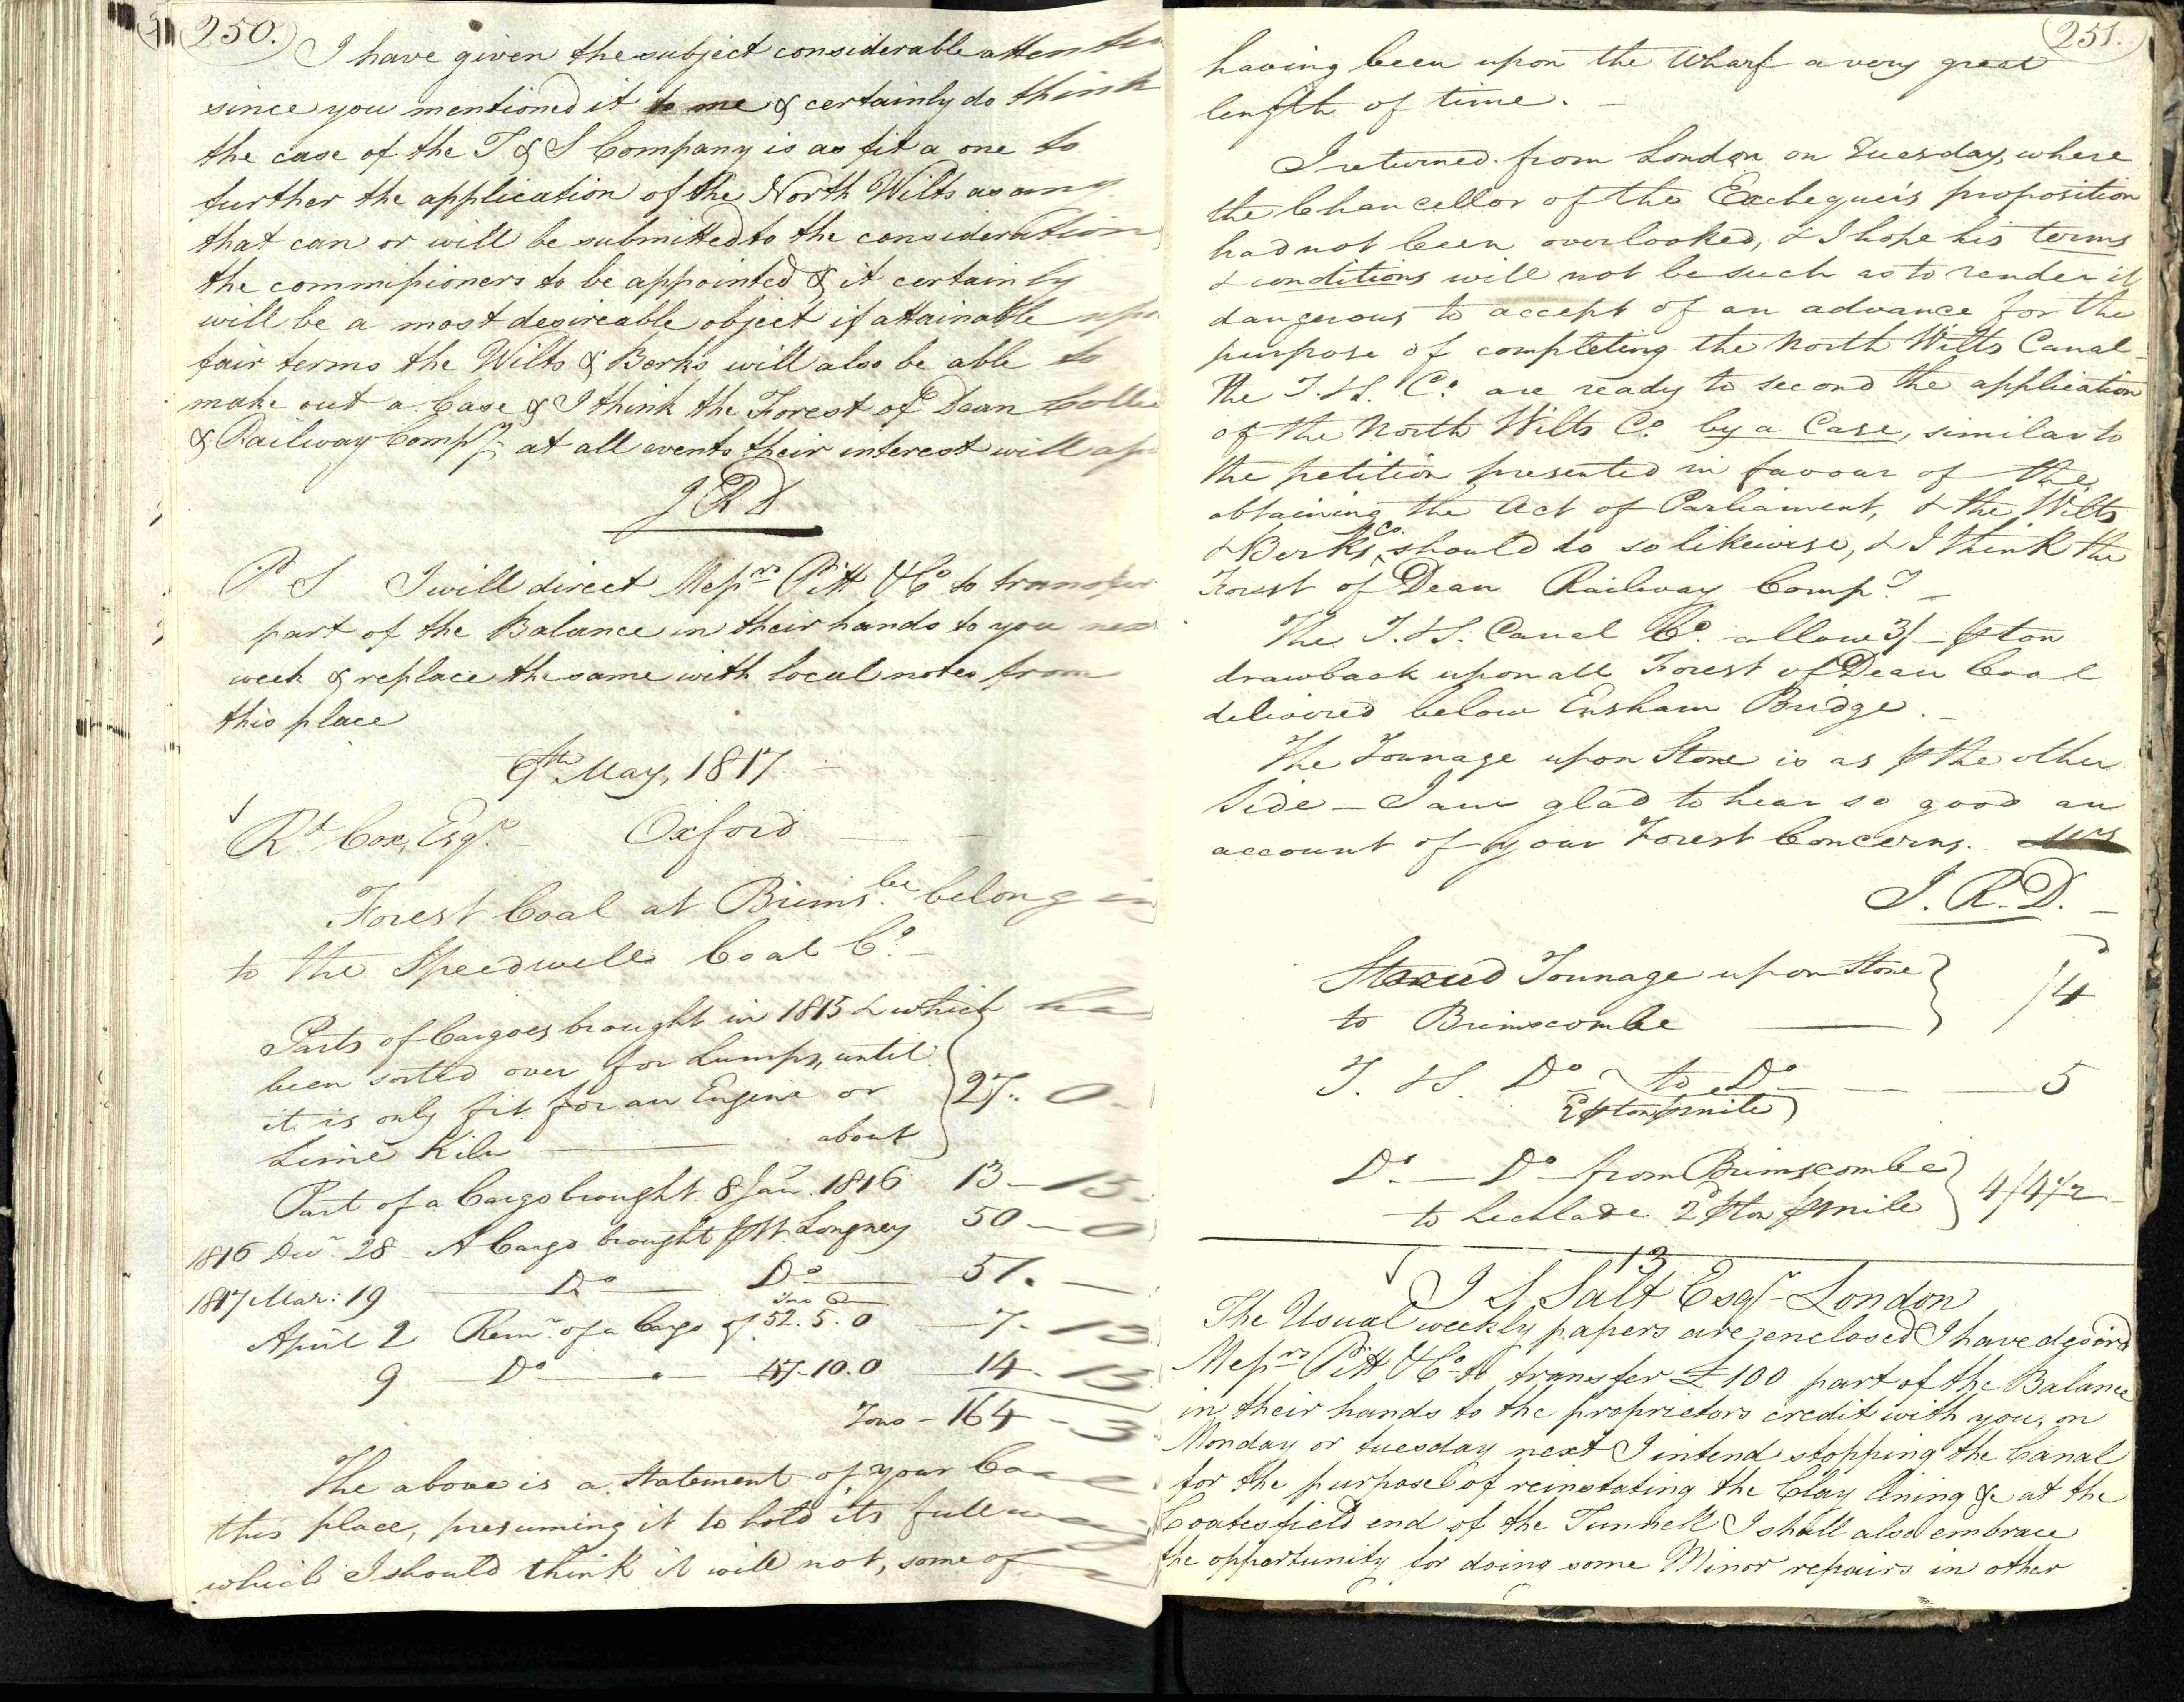 250.
I have given the subject considerable attention
since you mentioned it to me & certainly do think
the case of the T & S Company is as fit a one to
further the application of the North Wilts as any
that can or will be submitted to the consideration
the commissioners to be appointed & it certainly
will be a most desireable object if attainable upo
fair terms the Wilts & Berks will also be able to
make out a Case & I think the Forest of Dean Colli
& Railway Compy at all events their interest will ap
J R D
P S I will direct Messrs Pitt & Co to transfer
part of the Balance in their hands to you nex
week & replace the same with local notes from
this place
9th May, 1817
Rd Cox, Esqr Oxford
Forest Coal at Brimsbe belonging
to the Speedwell Coal Co
Parts of Cargoes brought in 1815 & which ha
been sorted over for Lumps, until
it is only fit for an Engine or 27. 0
Lime Kiln about
Part of a Cargo brought 8 Jany 1816 13 - 15
1816 Decr 28 A Cargo brought pr Wt Longney 50 - 0
1817 Mar: 19 Do Do 51. -
April 2 Remr of a Cargo of 52. 5. 0 7. 13
9 Do 47. 10. 0 14. 15
Tons - 164 - 3
The above is a Statement of your Coal
this place, presuming it to hold its full
which I should think it will not, some of
251.
having been upon the Wharf a very great
length of time. -
I returned from London on Tuesday, where
the Chancellor of the Exchequer's proposition
had not been overlooked, & I hope his terms
& conditions will not be such as to render it
dangerous to accept of an advance for the
purpose of completing the North Wilts Canal -
the T. & S. Co. are ready to second the application
of the North Wilts Co. by a Case, similar to
the petition presented in favour of the
obtaining the Act of Parliament, & the Wilts
& Berks Co. should do so likewise, & I think the
Forest of Dean Railway Compy -
The T. & S. Canal Co. allow 3/- p ton
drawback upon all Forest of Dean Coal
delivered below Ensham Bridge. -
The Tonnage upon Stone is as p the other
Side - I am glad to hear so good an
account of your Forest Concerns.
J. R. D. -
Stroud Tonnage upon Stone
to Brimscombe /4
T. & S. Do to Do 5
p ton p mile
Do - Do from Brimscombe
to Lechlade 2d p ton p mile 4/4 1/2
13
J S Salt Esqr London
The Usual weekly papers are enclosed I have desired
Messrs Pitt & Co to transfer £100 part of the Balance
in their hands to the proprietors credit with you, on
Monday or tuesday next I intend stopping the Canal
for the purpose of reinstating the Clay lining &c at the
Coatesfield end of the Tunnell I shall also embrace
the opportunity for doing some Minor repairs in other